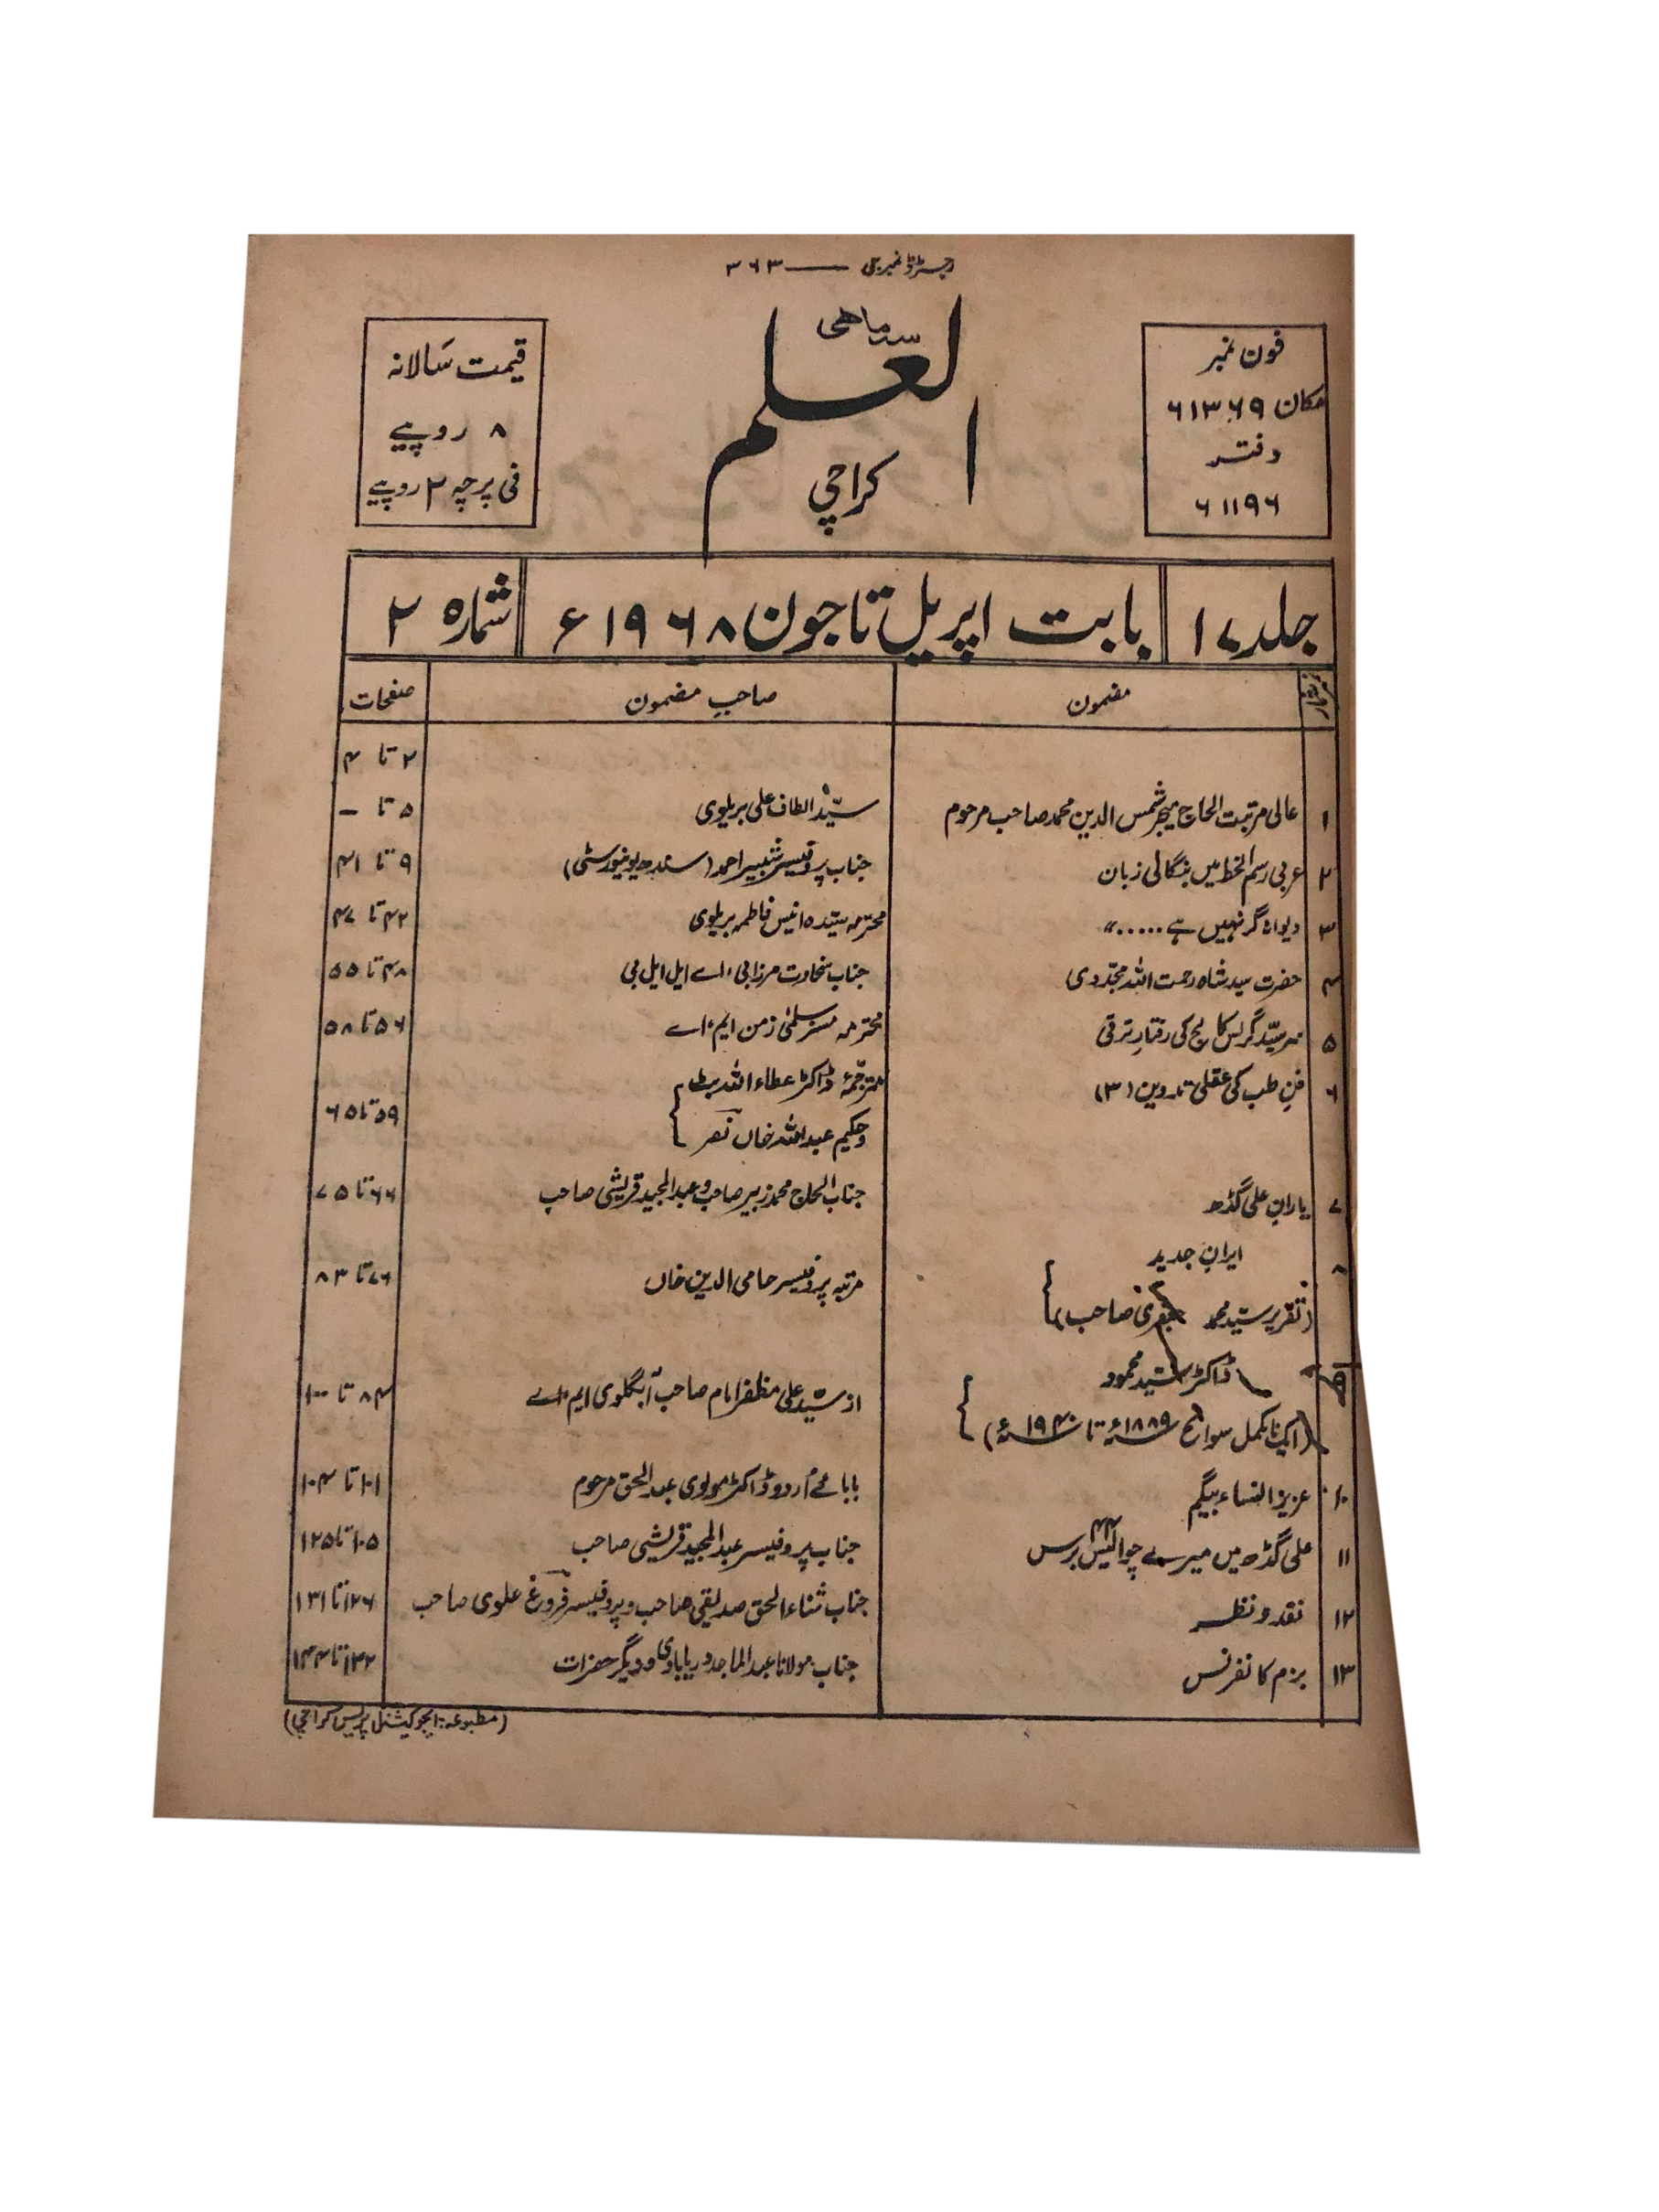 رجسٹرڈ نمبر جی ——— ۳۶۳
سہ ماهی
العلم
کراچی
فون نمبر
مکان ۶۱۳۶۹
دفتر
۶۱۱۹۶
قیمت سالانہ
۸ روپیے
فی پرچہ ۲ روپیے
جلد ۱۷ بابت اپریل تا جون ۱۹۶۸ء شمارہ ۲
مضمون صاحبِ مضمون صفحات
۲ تا ۴
۱ عالی مرتبت الحاج میجر شمس الدین محمد صاحب مرحوم سیّد الطاف علی بریلوی ۵ تا —
۲ عربی رسم الخط میں بنگالی زبان جناب پروفیسر شبیر احمد (سندھ یونیورسٹی) ۹ تا ۴۱
۳ دیوانہ گر نہیں ہے ....." محترمہ سیّدہ انیس فاطمہ بریلوی ۴۲ تا ۴۷
۴ حضرت سید شاہ رحمت اللہ مجدّدی جناب سخاوت مرزا بی، اے ایل ایل بی ۴۸ تا ۵۵
۵ سرسیّد گرلس کالج کی رفتارِ ترقی محترمہ مسز سلمیٰ زمن ایم، اے ۵۶ تا ۵۸
۶ فنِ طب کی عقلی تدوین (۳) مترجّمۂ ڈاکٹر عطاء اللہ بٹ
و حکیم عبداللہ خاں نصر ۵۹ تا ۶۵
۷ یارانِ علی گڈھ جناب الحاج محمد زبیر صاحب و عبدالمجید قریشی صاحب ۶۶ تا ۷۵
۸ ایرانِ جدید
(تقریر سیّد محمد جعفری صاحب) مرتبہ پروفیسر حامی الدین خاں ۷۶ تا ۸۳
۹ ڈاکٹر سیّد محمود
(ایک نامکمل سوانح ۱۸۸۹ء تا ۱۹۴۰ء) از سیّد علی مظفر امام صاحب آبگلوی ایم، اے ۸۴ تا ۱۰۰
۱۰ عزیز النساء بیگم بابائے اُردو ڈاکٹر مولوی عبدالحق مرحوم ۱۰۱ تا ۱۰۴
۱۱ علی گڈھ میں میرے چوالیس ۴۴ برس جناب پروفیسر عبدالمجید قریشی صاحب ۱۰۵ تا ۱۲۵
۱۲ نقد و نظر جناب ثناء الحق صدیقی صاحب و پروفیسر فروغ علوی صاحب ۱۲۶ تا ۱۳۱
۱۳ بزم کانفرنس جناب مولانا عبدالماجد دریابادی و دیگر حضرات ۱۳۲ تا ۱۴۴
(مطبوعہ: ایجوکیشنل پریس کراچی)